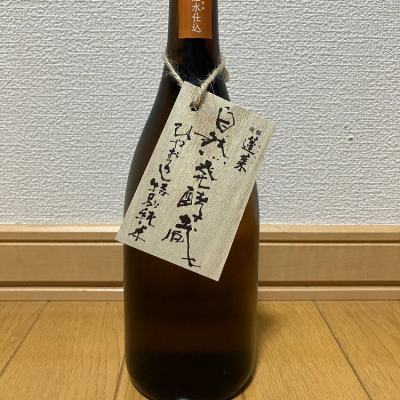 水仕込
蓬莱
自然発酵蔵
ひやおろし 特別純米